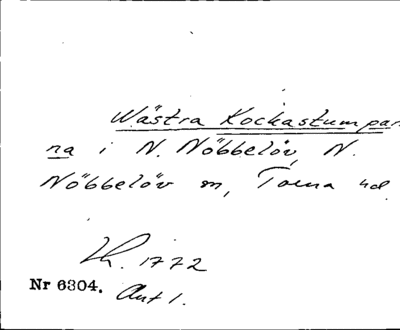 Wästra Kockastumpar-
na i N. Nöbbelöv, N.
Nöbbelöv sn, Torna hd
Lh. 1772
Nr 6304. Akt 1.